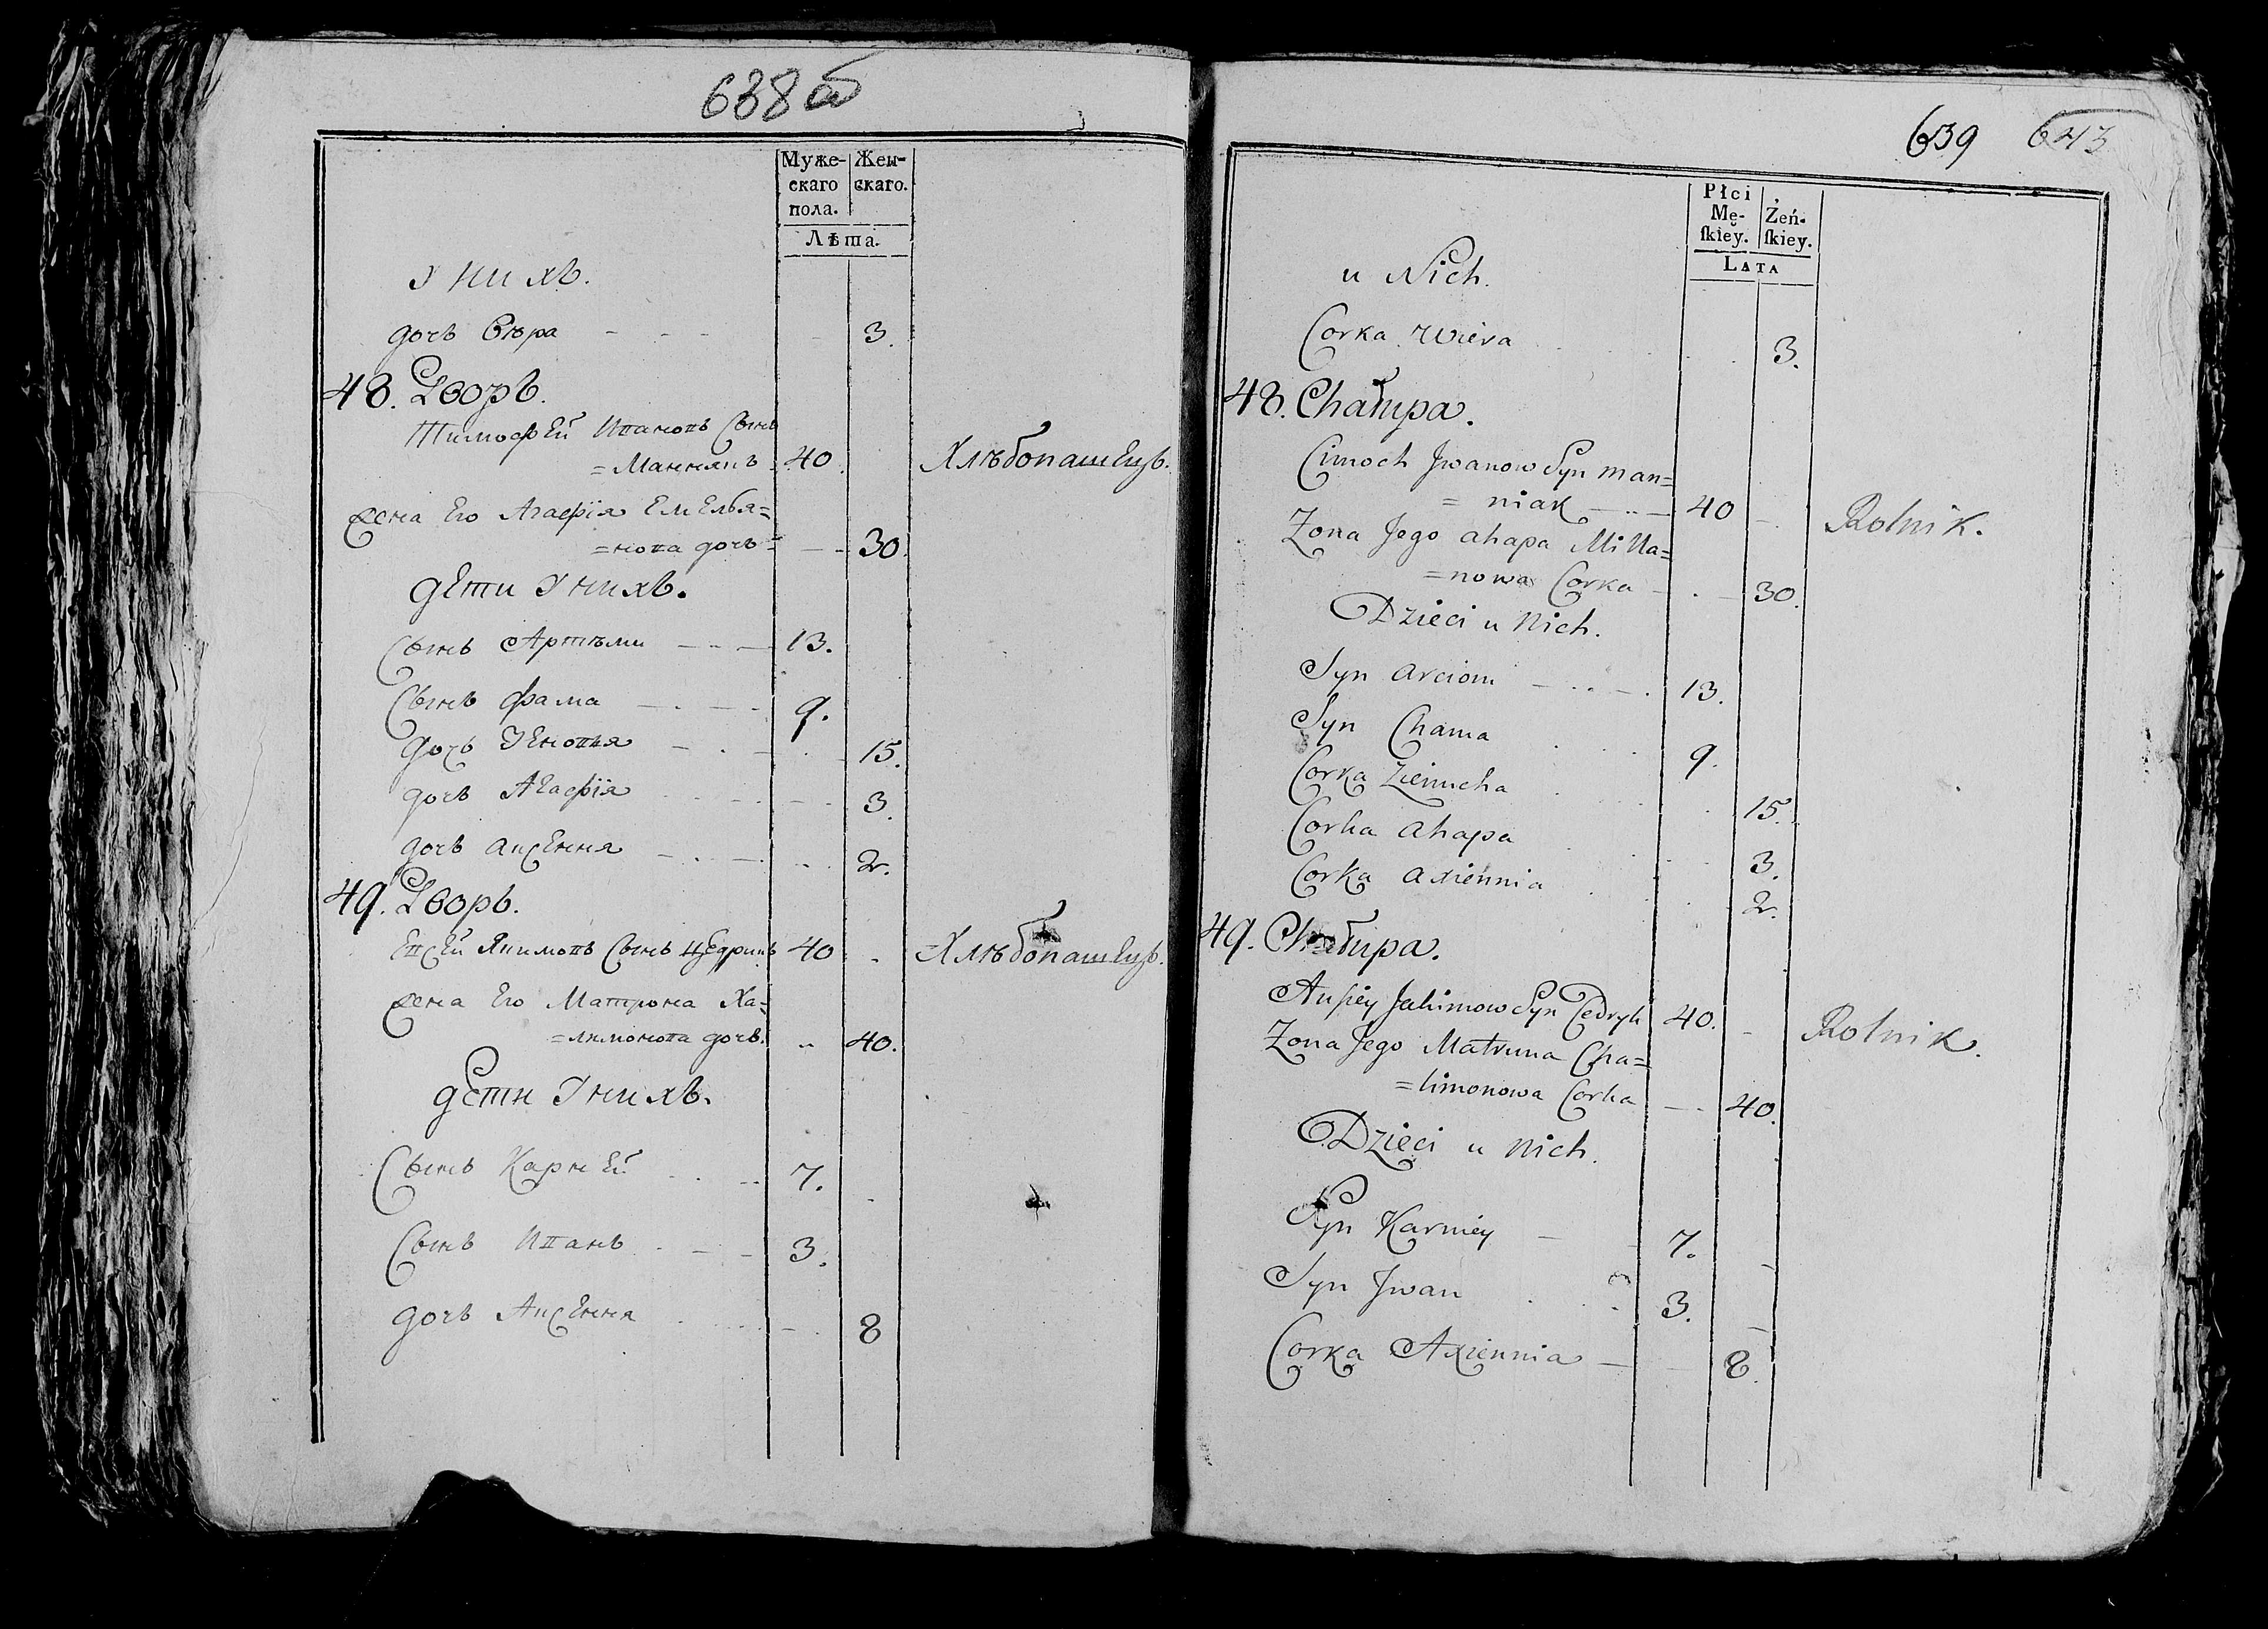 638 об
Муже-
скаго
пола.
Жен-
скаго.
Лѣта.
У нихъ.
дочь Вѣра 3.
48. Дворъ.
Тимофей Ивановъ Сынъ
=Маннякъ 40. Хлѣбопашецъ.
Жена Его Агафія Емелья=
=нова дочь 30.
Дети У нихъ.
Сынъ Артѣми 13.
Сынъ Фама 9.
дочь Зеновья 15.
дочь Агафія 3.
дочь Аксення 2.
49. Дворъ.
Евсей Якимовъ Сынъ Цедрикъ 40 Хлѣбопашецъ.
Жена Его Матрона Ха=
=лимонова дочь. 40.
Дети У нихъ.
Сынъ Карней 7.
Сынъ Иванъ 3.
дочь Аксення 8
639 643
Płci
Mę-
skiey.
Żeń-
skiey.
Lata
u Nich.
Corka Wiera 3.
48. Chałupa.
Cimoch Jwanow Syn Man=
=niak 40 Rolnik.
Zona Jego Ahapa Milla=
=nowa Corka 30.
Dzieci u Nich.
Syn Arciom 13.
Syn Chama 9.
Corka Zienucha 15.
Corka Ahapa 3.
Corka Axiennia 2.
49. Chałupa.
Ausiey Jakimow Syn Cedryk 40. Rolnik.
Zona Jego Matruna Cha=
=limonowa Corka 40.
Dzieci u Nich.
Syn Karniey 7.
Syn Jwan 3.
Corka Axiennia 8.